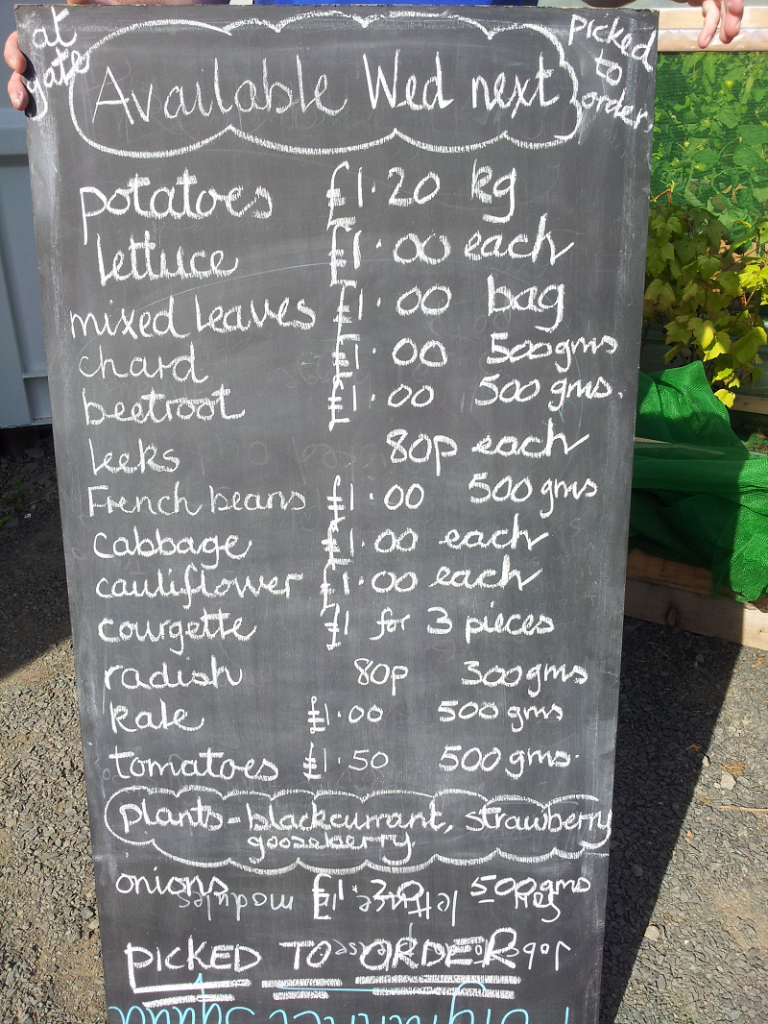 at gate
picked to order.
Available Wed next
potatoes £1.20 kg
lettuce £1.00 each
mixed leaves £1.00 bag
chard £1.00 500gms
beetroot £1.00 500gms.
leeks 80p each
French beans £1.00 500gms
cabbage £1.00 each
cauliflower £1.00 each
courgette £1 for 3 pieces
radish 80p 300gms
kale £1.00 500gms
tomatoes £1.50 500gms.
plants - blackcurrant, strawberry
goozeberry
onions £1.30 500gms
PICKED TO ORDER